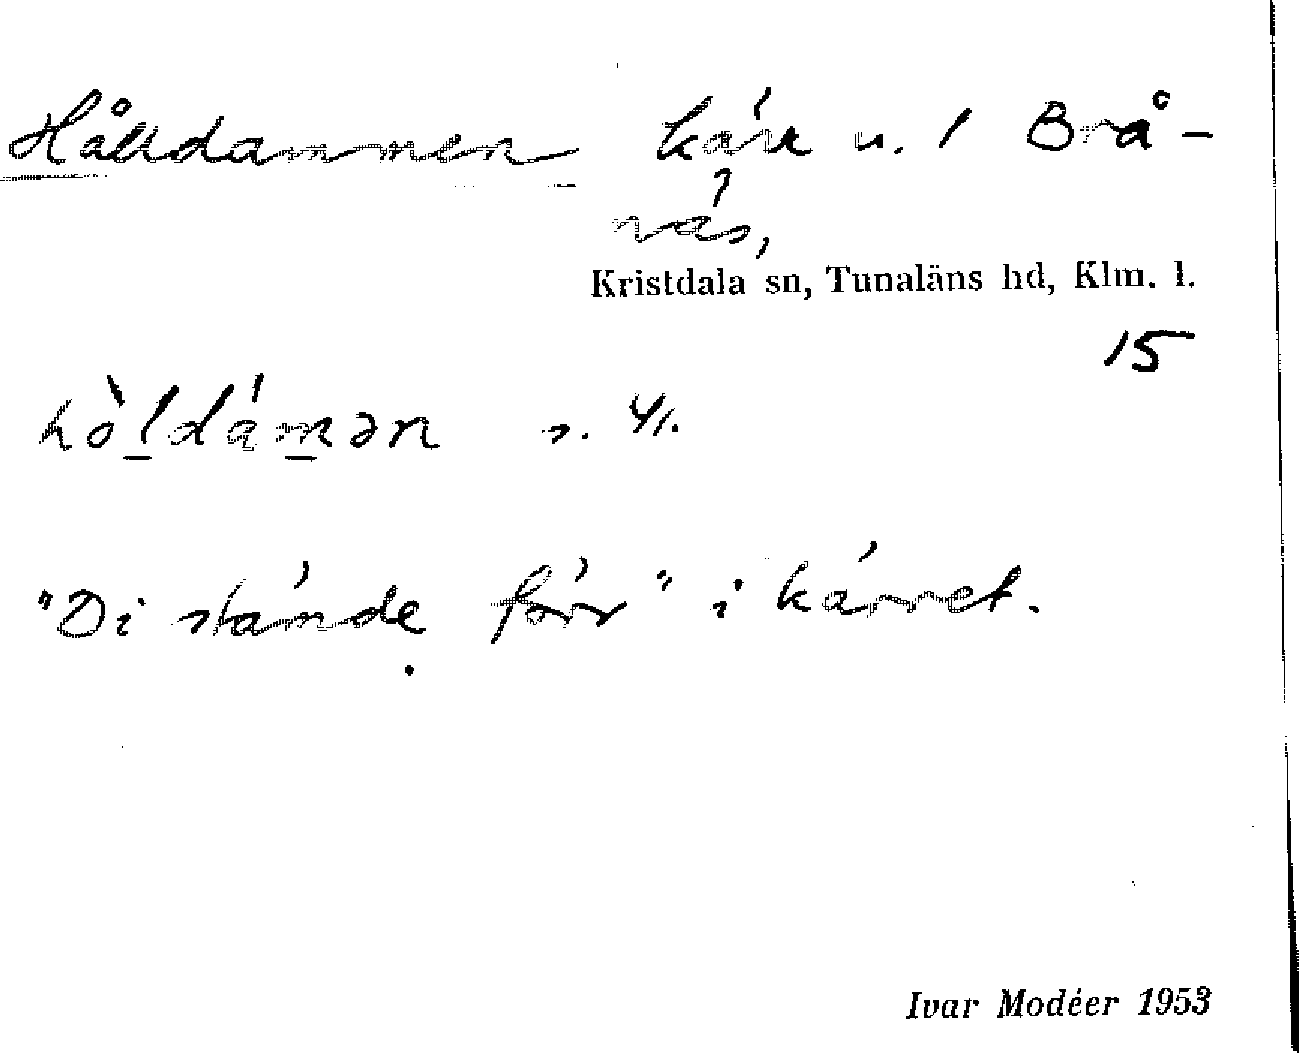 Hålldammen kärr u. 1 Brå-
näs,
Kristdala sn, Tunaläns hd, Klm. l.
15
hòldámən s. 4/1.
"Di stännde förr" i kärret.
Ivar Modéer 1953